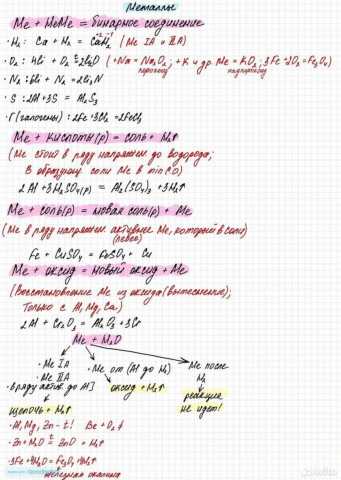 Металлы
Me + НеMe = бинарное соединение
· H₂: Ca + H₂ = CaH₂ (Me IA и IIA)
· O₂: 4Li + O₂ = 2Li₂O (+Na = Na₂O₂; +K и др. Me = KO₂; 3Fe + 2O₂ = Fe₃O₄)
пероксид
надпероксид
· N₂: 6Li + N₂ = 2Li₃N
· S: 2Al + 3S = Al₂S₃
· Г(галогены): 2Fe + 3Cl₂ = 2FeCl₃
Me + кислоты(р) = соль + H₂↑
(Me стоит в ряду напряжен до водорода;
В образующ соли Me в min CO)
2Al + 3H₂SO₄(р) = Al₂(SO₄)₃ + 3H₂↑
Me + соль(р) = новая соль(р) + Me
(Me в ряду напряжен активнее Me, который в соли)
(левее)
Fe + CuSO₄ = FeSO₄ + Cu
Me + оксид = новый оксид + Me
(Восстановление Me из оксида (вытеснение);
Только с Al, Mg, Ca)
2Al + Cr₂O₃ = Al₂O₃ + 2Cr
Me + H₂O
· Me IA
· Me IIA
· в ряду актив до Al]
щелочь + H₂↑
· Me от (Al до H₂)
оксид + H₂↑
Me после
H₂
реакция
не идет!
· Al, Mg, Zn - t! Be + O₂ ≠
· Zn + H₂O t= ZnO + H₂↑
· 3Fe + 4H₂O = Fe₃O₄ + 4H₂↑
железная окалина